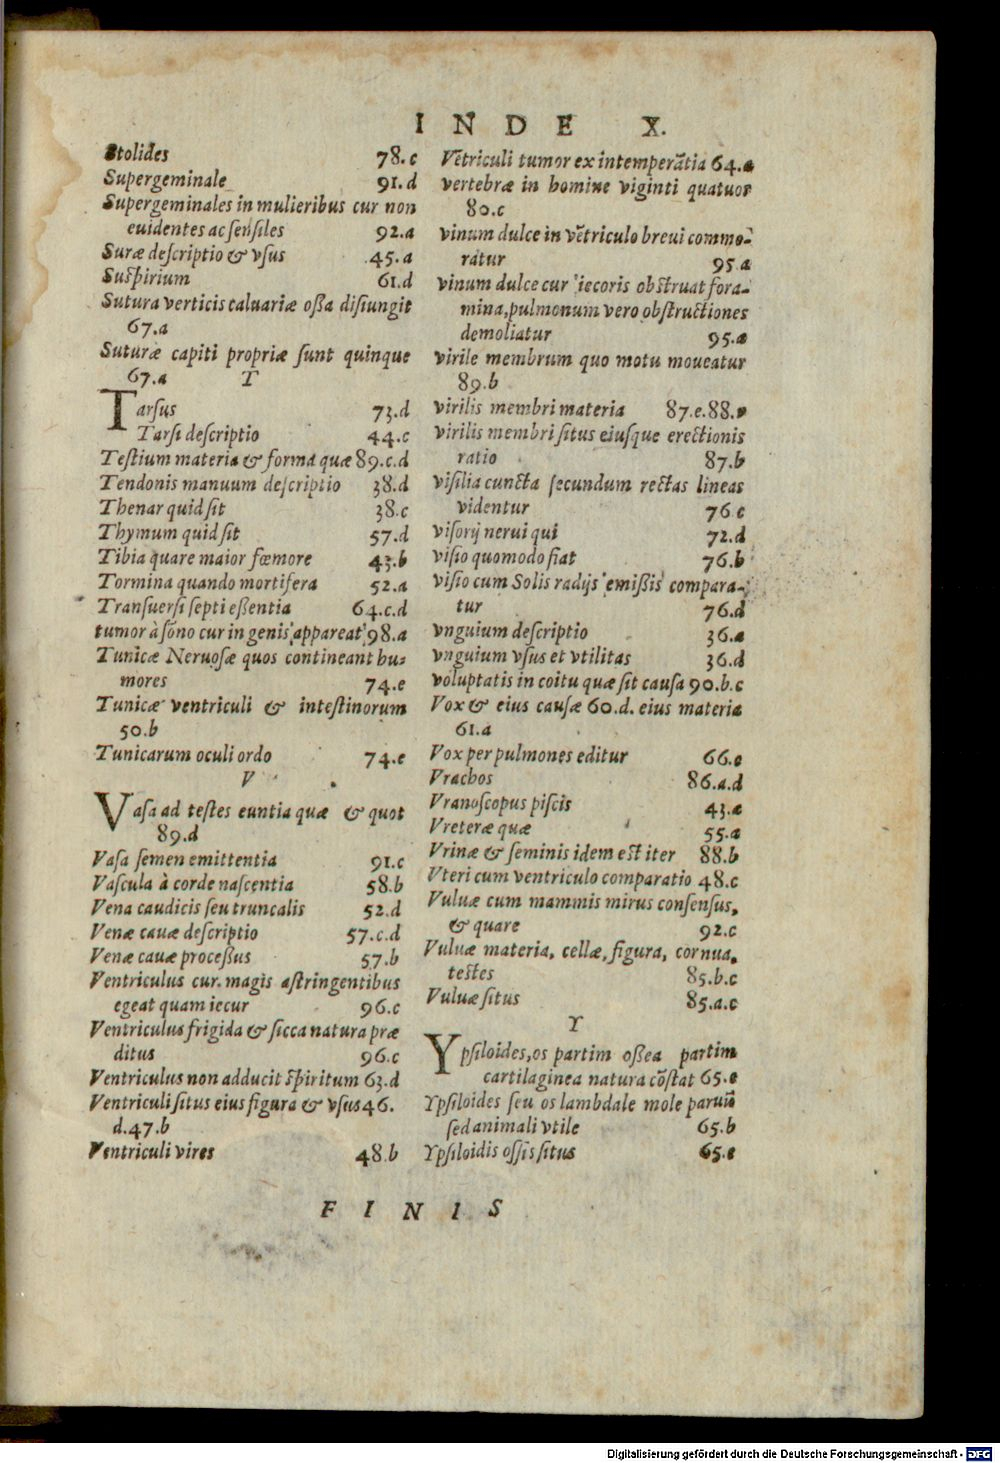 INDEX.
Stolides 78.c
Supergeminale 91.d
Supergeminales in mulieribus cur non
euidentes ac sensiles 92.a
Suræ descriptio & vsus 45.a
Suspirium 61.d
Sutura verticis caluariæ ossa disiungit
67.a
Suturæ capiti propriæ sunt quinque
67.a T
Tarsus 73.d
Tarsi descriptio 44.c
Testium materia & forma quæ 89.c.d
Tendonis manuum descriptio 38.d
Thenar quid sit 38.c
Thymum quid sit 57.d
Tibia quare maior fœmore 43.b
Tormina quando mortifera 52.a
Transuersi septi essentia 64.c.d
tumor à sōno cur in genis appareat 98.a
Tunicæ Neruosæ quos contineant hu-
mores 74.e
Tunicæ ventriculi & intestinorum
50.b
Tunicarum oculi ordo 74.e
V
Vasa ad testes euntia quæ & quot
89.d
Vasa semen emittentia 91.c
Vascula à corde nascentia 58.b
Vena caudicis seu truncalis 52.d
Venæ cauæ descriptio 57.c.d
Venæ cauæ processus 57.b
Ventriculus cur magis astringentibus
egeat quam iecur 96.c
Ventriculus frigida & sicca natura præ
ditus 96.c
Ventriculus non adducit spiritum 63.d
Ventriculi situs eius figura & vsus 46.
d.47.b
Ventriculi vires 48.b
Vētriculi tumor ex intemperātia 64.a
vertebræ in homine viginti quatuor
80.c
vinum dulce in vētriculo breui commo-
ratur 95.a
vinum dulce cur iecoris obstruat fora-
mina, pulmonum vero obstructiones
demoliatur 95.a
virile membrum quo motu moueatur
89.b
virilis membri materia 87.e.88.
virilis membri situs eiusque erectionis
ratio 87.b
visilia cuncta secundum rectas lineas
videntur 76 c
visorij nerui qui 72.d
visio quomodo fiat 76.b
visio cum Solis radijs emissis compara-
tur 76.d
vnguium descriptio 36.a
vnguium vsus et vtilitas 36.d
voluptatis in coitu quæ sit causa 90.b.c
Vox & eius causæ 60.d. eius materia
61.a
Vox per pulmones editur 66.e
Vrachos 86.a.d
Vranoscopus piscis 43.a
Vreteræ quæ 55.a
Vrinæ & seminis idem est iter 88.b
Vteri cum ventriculo comparatio 48.c
Vuluæ cum mammis mirus consensus,
& quare 92.c
Vuluæ materia, cellæ, figura, cornua,
testes 85.b.c
Vuluæ situs 85.a.c
Y
Ypsiloides, os partim ossea partim
cartilaginea natura cōstat 65.e
Ypsiloides seu os lambdale mole paruū
sed animali vtile 65.b
Ypsiloidis ossis situs 65.e
FINIS
Digitalisierung gefördert durch die Deutsche Forschungsgemeinschaft - DFG